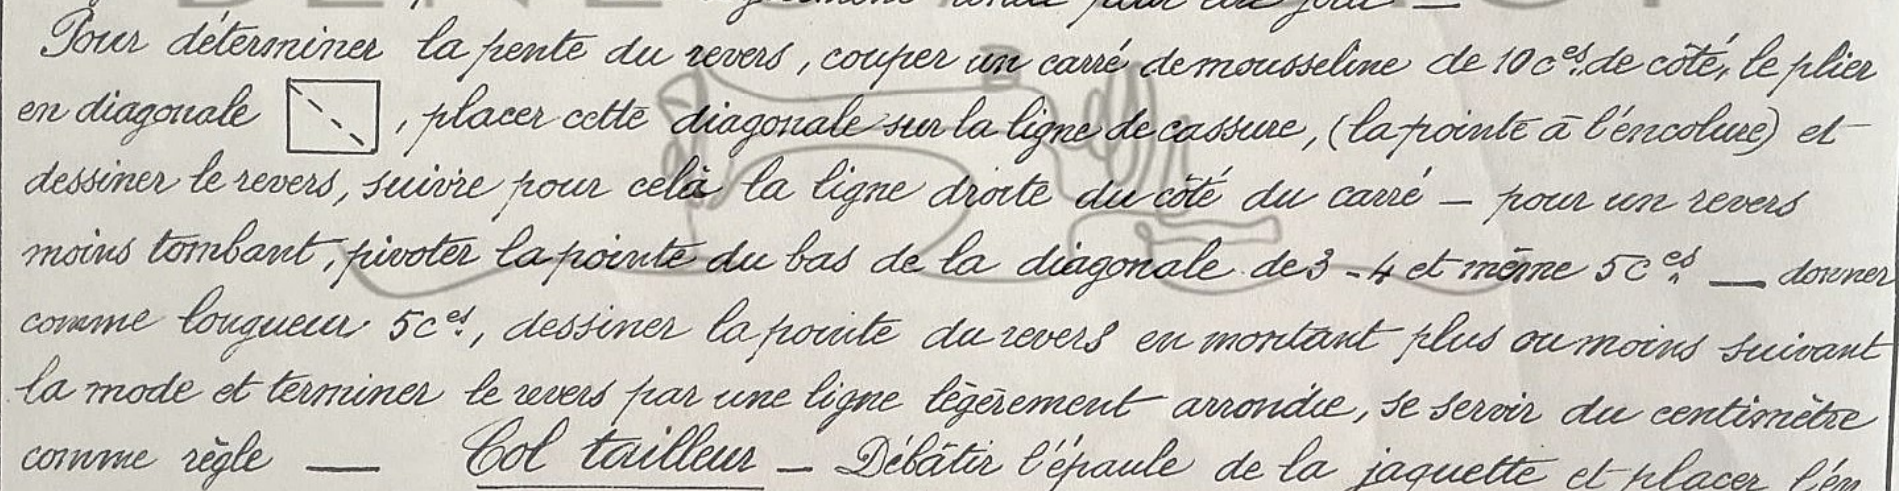 Pour déterminer la pente du revers, couper un carré de mousseline de 10 c.es de côté, le plier
en diagonale , placer cette diagonale sur la ligne de cassure, (la pointe à l'encolure) et
dessiner le revers, suivre pour celà la ligne droite du côté du carré — pour un revers
moins tombant, pivoter la pointe du bas de la diagonale de 3 - 4 et même 5 c.es — donner
comme longueur 5 c.es, dessiner la pointe du revers en montant plus ou moins suivant
la mode et terminer le revers par une ligne légèrement arrondie, se servir du centimètre
comme règle — Col tailleur — Débâtir l'épaule de la jaquette et placer l'en